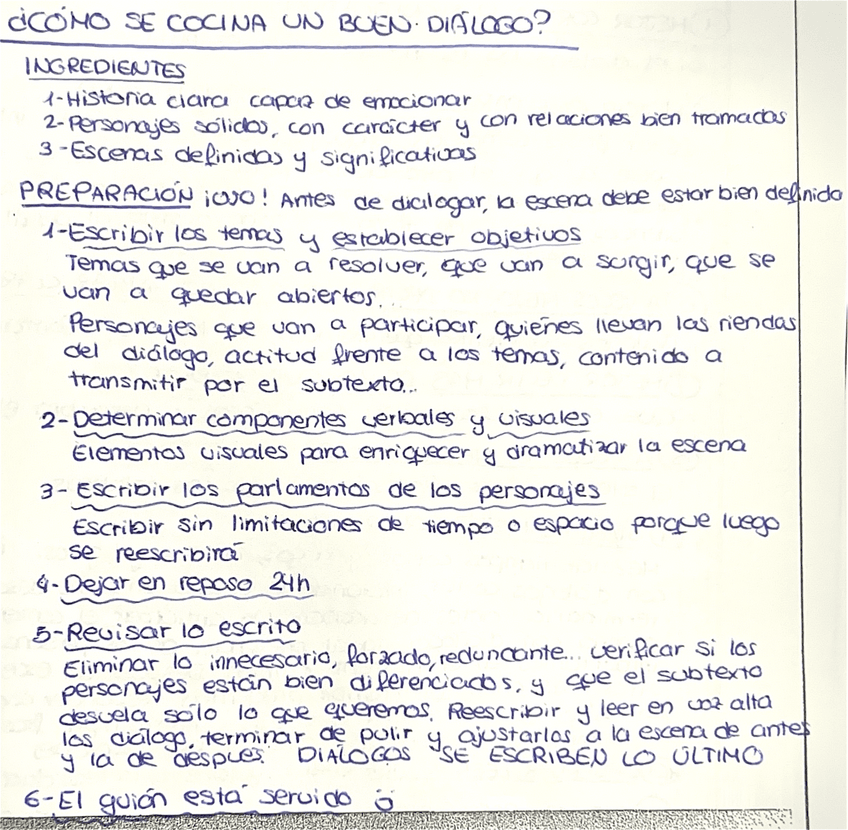 ¿CÓMO SE COCINA UN BUEN DIÁLOGO?
INGREDIENTES
1-Historia clara capaz de emocionar
2-Personajes sólidos, con carácter y con relaciones bien tramadas
3-Escenas definidas y significativas
PREPARACIÓN ¡OJO! Antes de dialogar, la escena debe estar bien definida
1-Escribir los temas y establecer objetivos
Temas que se van a resolver, que van a surgir, que se
van a quedar abiertos...
Personajes que van a participar, quiénes llevan las riendas
del diálogo, actitud frente a los temas, contenido a
transmitir por el subtexto...
2-Determinar componentes verbales y visuales
Elementos visuales para enriquecer y dramatizar la escena
3-Escribir los parlamentos de los personajes
Escribir sin limitaciones de tiempo o espacio porque luego
se reescribirá
4-Dejar en reposo 24h
5-Revisar lo escrito
Eliminar lo innecesario, forzado, redundante... verificar si los
personajes están bien diferenciados, y que el subtexto
desvela sólo lo que queremos. Reescribir y leer en voz alta
los diálogo, terminar de pulir y ajustarlos a la escena de antes
y la de después. DIÁLOGOS SE ESCRIBEN LO ÚLTIMO
6-El guión está servido